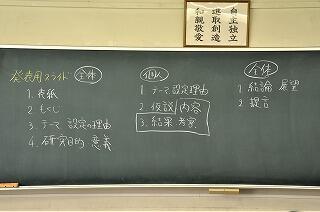 自主独立
進取創造
和親敬愛
発表用スライド 全体
1. 表紙
2. もくじ
3. テーマ 設定の理由
4. 研究目的 意義
個人
1 テーマ設定理由
2 仮説/内容
3. 結果 考察
全体
1 結論 展望
2 提言